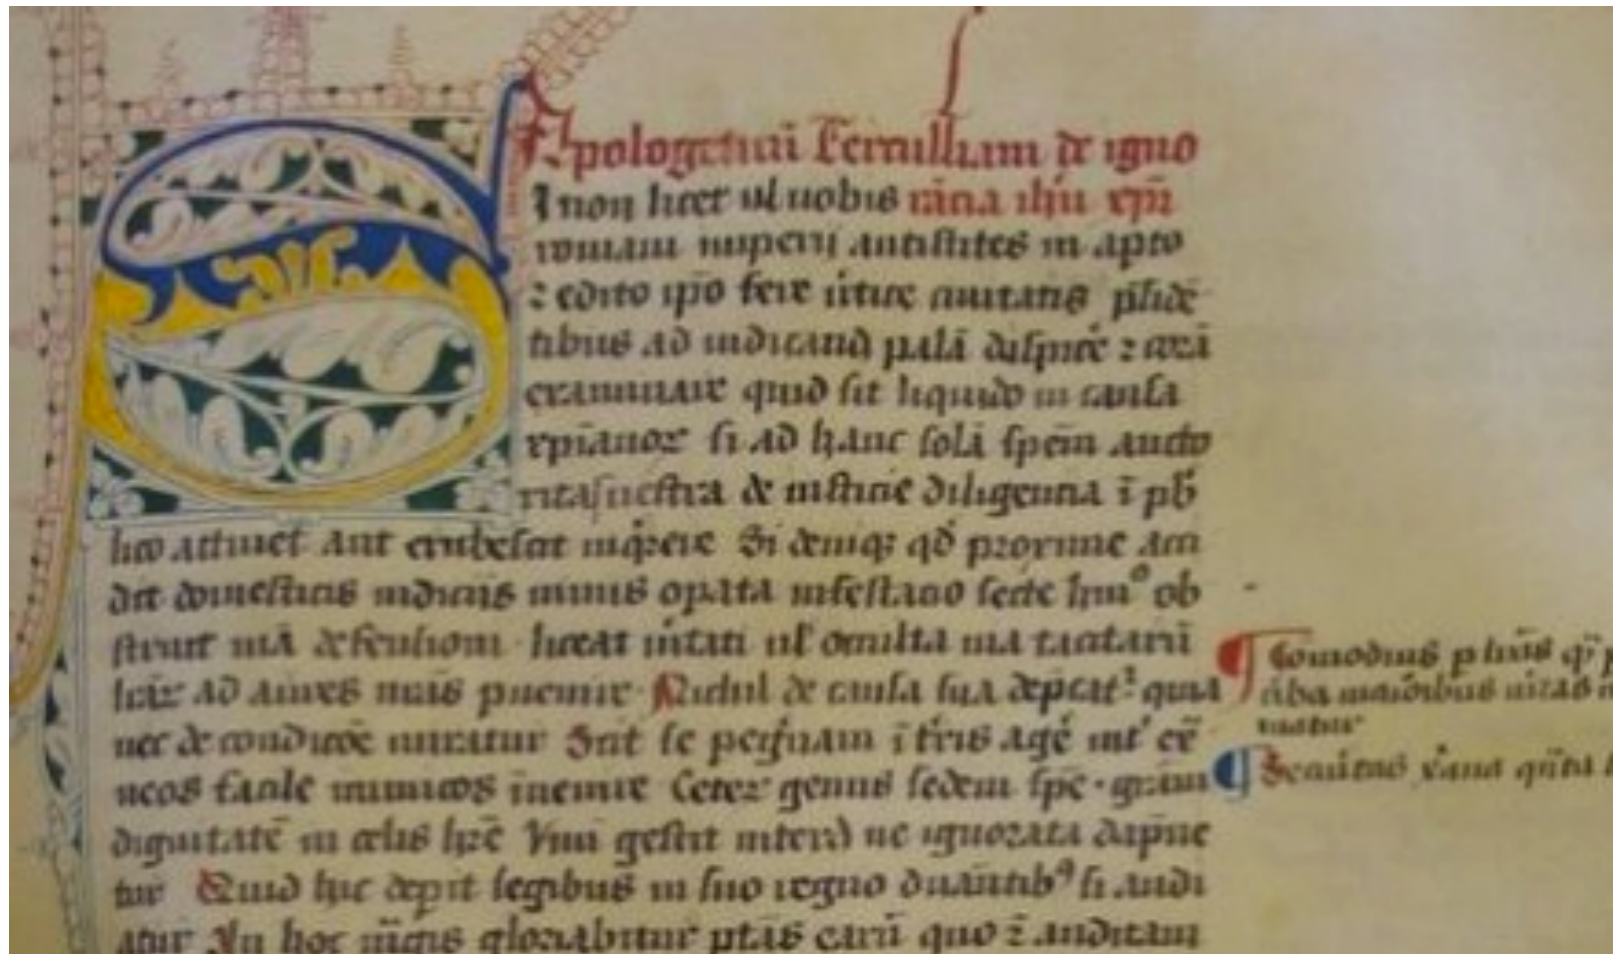 Apologeticū Tertulliani de igno
I non licet ul uobis rācia ihū xpī
romani imperij antistites in apto
⁊ edito ipō fere uītice ciuitatis p̄sidē
tibus ad iudicand palā dispicē ⁊ corā
examinare quid sit liquido in causa
xpianoꝝ si ad hanc solā spēm aucto
ritas uestra de iusticie diligentia ī pb̄
lico attinet aut erubescit inqrere Si deniqꝫ qd̄ proxime acci
dit domesticis iudicijs nimis opata infestatio secte huiꝰ ob
struit uiā defensioni liceat uītati ul̄ occulta uia tacitarū
lrāꝝ ad aures ur̄as puenire Nichil de causa sua depcat quia
nec de condicōe miratur Scit se pegnam ī tr̄ris agē int̄ ex̄
neos facile inimicos īuenire Ceteꝝ genus sedem spē grām
dignitatē in celis hr̄e Vnū gestit interd̄ ne ignorata dāpne
tur Quid hic depit legibus in suo regno dn̄antibꝰ si audi
atur An hoc māgis gloriabitur ptās earū quo ⁊ auditam
Comodius
Seueritas uana